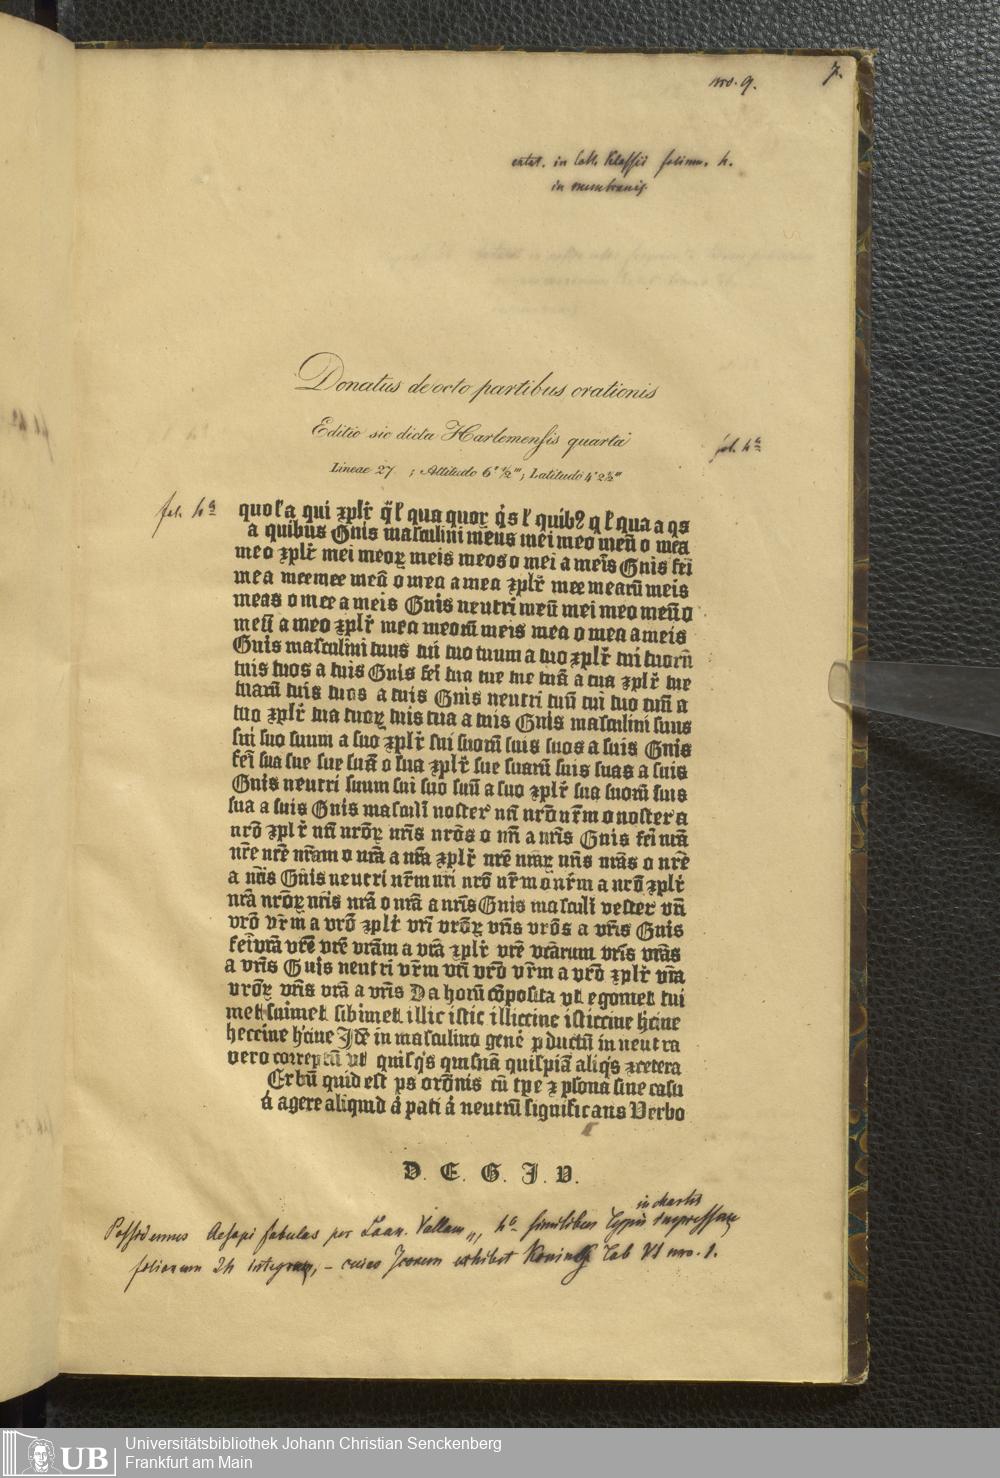 nro. 9. 7.
extat. in Cath. Klossii folium. 4.
in membranis
Donatus de octo partibus orationis
Editio sic dicta Harlemensis quarta
fol. 4ª
Lineae 27 ; Altitudo 6" ½'''; Latitudo 4" 2½'''
fol. 4ª
quo ł a qui ⁊plr̄ q̄ ł qua quoꝝ q̄s ł quibꝰ q ł qua a qs
a quibus Gnis masculini meus mei meo meū o mea
meo ⁊plr̄ mei meoꝝ meis meos o mei a meis Gnis fei
mea mee mee meā o mea a mea ⁊plr̄ mee mearū meis
meas o mee a meis Gnis neutri meū mei meo meū o
meū a meo ⁊plr̄ mea meorū meis mea o mea a meis
Gnis masculini tuus tui tuo tuum a tuo ⁊plr̄ tui tuorū
tuis tuos a tuis Gnis fei tua tue tue tuā a tua ⁊plr̄ tue
tuarū tuis tuas a tuis Gnis neutri tuū tui tuo tuū a
tuo ⁊plr̄ tua tuoꝝ tuis tua a tuis Gnis masculini suus
sui suo suum a suo ⁊plr̄ sui suorū suis suos a suis Gnis
fei sua sue sue suā o sua ⁊plr̄ sue suarū suis suas a suis
Gnis neutri suum sui suo suū a suo ⁊plr̄ sua suorū suis
sua a suis Gnis masculī noster nr̄i nrō nr̄m o noster a
nrō ⁊plr̄ nr̄i nrōꝝ nrīs nrōs o nr̄i a nrīs Gnis fei nrā
nrē nrē nrām o nrā a nrā ⁊plr̄ nrē nrāꝝ nrīs nrās o nrē
a nrīs Gnis neutri nr̄m nri nrō nr̄m o nr̄m a nrō ⁊plr̄
nrā nrōꝝ nris nrā o nrā a nrīs Gnis masculī vester vr̄i
vrō vr̄m a vrō ⁊plr̄ vrī vrōꝝ vrīs vrōs a vrīs Gnis
fei vrā vrē vrē vrām a vrā ⁊plr̄ vrē vrārum vrīs vrās
a vrīs Gnis neutri vr̄m vrī vrō vr̄m a vrō ⁊plr̄ vrā
vrōꝝ vrīs vrā a vrīs Da horū cōposita vt egomet tui
met suimet sibimet illic istic illiccine isticcine hcine
heccine hcine Idē in masculino genē pductū in neutra
vero correptū vt quisq̄s quisnā quispiā aliq̄s ⁊cetera
Erbū quid est ps orōnis cū tpe ⁊ psona sine casu
á agere aliquid á pati á neutrū significans Verbo
D. E. G. J. V.
in chartis
Possidemus Aesopi fabulas per Laur. Vallam, 4º similibus typis impressas
foliorum 24 integras, – cuius Iconem exhibet Koning Tab VI nro. 1.
UB
Universitätsbibliothek Johann Christian Senckenberg
Frankfurt am Main